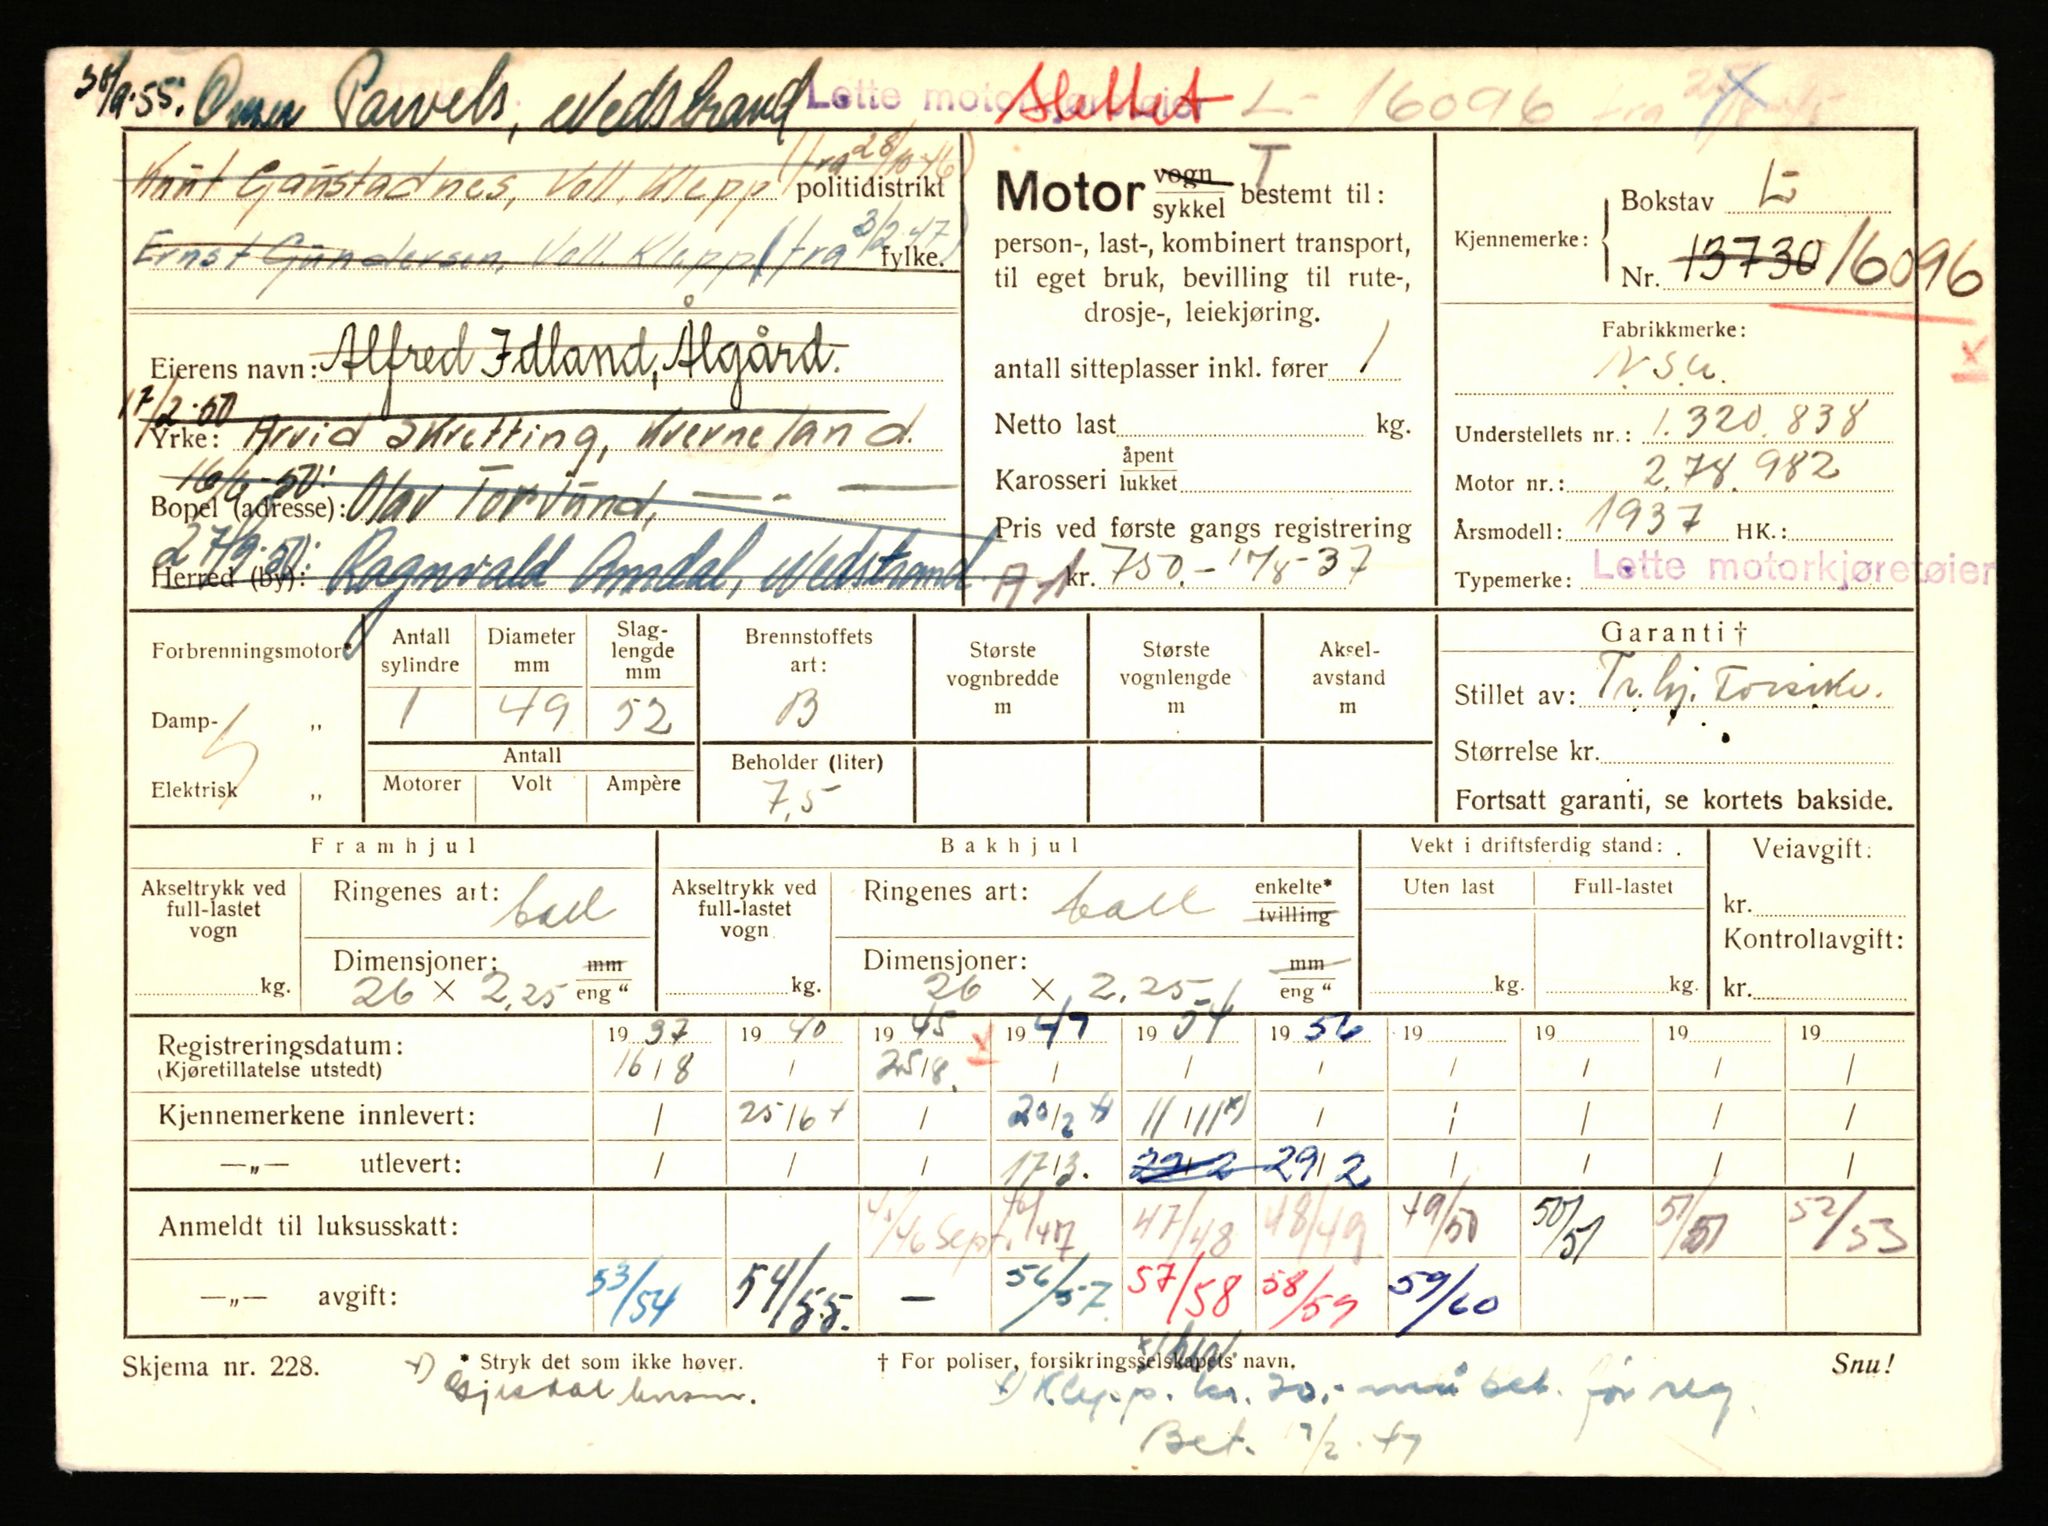 30/9.55. Omer Pawels, Nedstrand Lette motorkjøretøier Slettet L- 16096 fra
Knut Gaustadnes, Voll, Klepp (fra 28/10 46) politidistrikt
Ernst Gundersen, Voll. Klepp (fra 3/2.47) fylke.
Eierens navn: Alfred Idland, Ålgård.
17/2.50
Yrke: Arvid Skretting, Kverneland.
Bopel (adresse): Olav Torvund, — " —
27/9.50:
Herred (by): Ragnvald Amdal, Nedstrand.
Motor vogn sykkel T bestemt til:
person-, last-, kombinert transport,
til eget bruk, bevilling til rute-,
drosje-, leiekjøring.
antall sitteplasser inkl. fører 1
Netto last kg.
Karosseri åpent lukket
Pris ved første gangs registrering
kr. 750.- 17/8-37
Kjennemerke: Bokstav L
Nr. 13730 16096
Fabrikkmerke:
N.S.U.
Understellets nr.: 1.320.838
Motor nr.: 2.78.982
Årsmodell: 1937 HK.:
Typemerke: Lette motorkjøretøier
Forbrenningsmotor*
Damp- „
Elektrisk „
Antall sylindre Diameter mm Slaglengde mm
1 49 52
Antall
Motorer Volt Ampère
Brennstoffets art:
B
Beholder (liter)
7,5
Største vognbredde m
Største vognlengde m
Akselavstand m
Garanti †
Stillet av: Tr.hj. Forsikr.
Størrelse kr.
Fortsatt garanti, se kortets bakside.
Framhjul
Akseltrykk ved full-lastet vogn kg.
Ringenes art: ball
Dimensjoner: 26 x 2,25 mm eng "
Bakhjul
Akseltrykk ved full-lastet vogn kg.
Ringenes art: ball enkelte* tvilling
Dimensjoner: 26 x 2,25 mm eng "
Vekt i driftsferdig stand:
Uten last Full-lastet
kg. kg.
Veiavgift:
kr.
Kontrollavgift:
kr.
Registreringsdatum: 19 37 19 40 19 45 19 47 19 54 19 56 19 19 19 19
(Kjøretillatelse utstedt) 16/8 / 25/8. / / / / / / /
Kjennemerkene innlevert: / 25/6 + / 20/2 +) 11/11 x) / / / / /
—„— utlevert: / / / 17/3. 29/2 29/2 / / / /
Anmeldt til luksusskatt: 45/46 Sept. 46/47 47/48 48/49 49/50 50/51 51/51 52/53
—„— avgift: 53/54 54/55. — 56/57. 57/58 58/59 59/60
Skjema nr. 228. * Stryk det som ikke høver. † For poliser, forsikringsselskapets navn. Snu!
+) Gjestal lensm.
+) Klepp. kr. 20.- må bet. før reg.
Bet. 17/2.47